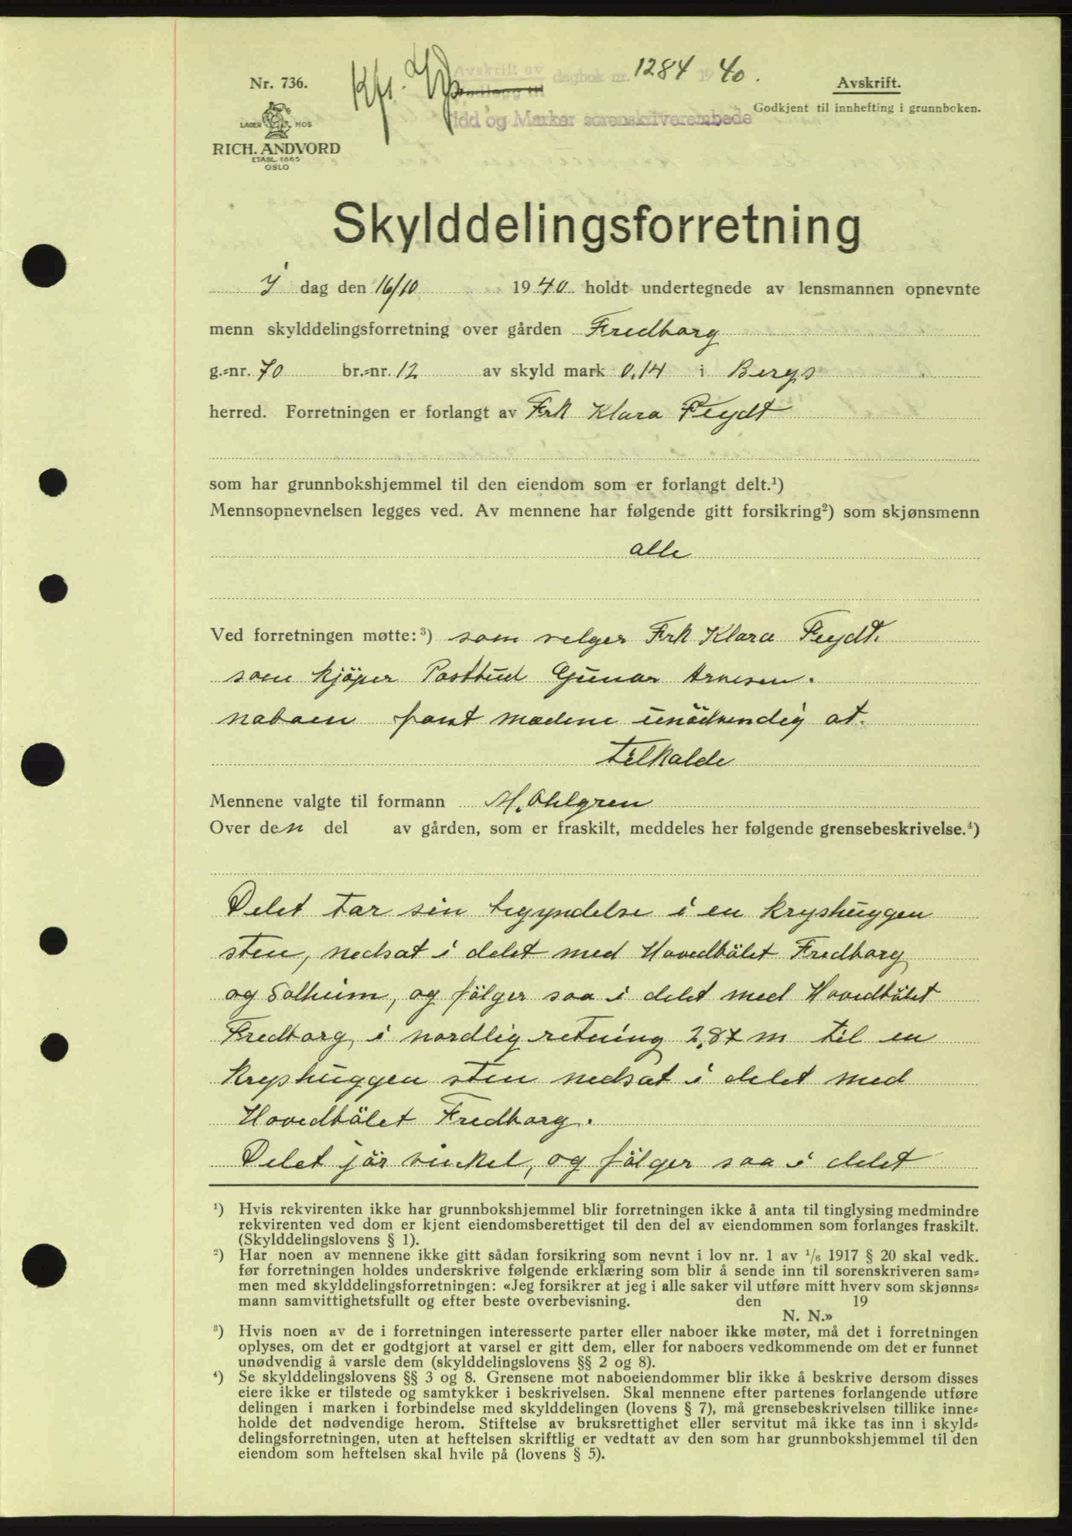 Nr. 736.
LAGER HOS
RICH. ANDVORD
ETABL. 1865
OSLO
Kfr.
Avskrift av dagbok nr. 1284 1940.
Idd og Marker sorenskriverembede
Avskrift.
Godkjent til innhefting i grunnboken.
Skylddelingsforretning
I dag den 16/10 1940 holdt undertegnede av lensmannen opnevnte
menn skylddelingsforretning over gården Fredborg
g.=nr. 70 br.=nr. 12 av skyld mark 0.14 i Bergs
herred. Forretningen er forlangt av Frk Klara Feydt
som har grunnbokshjemmel til den eiendom som er forlangt delt.¹)
Mennsopnevnelsen legges ved. Av mennene har følgende gitt forsikring²) som skjønsmenn
alle
Ved forretningen møtte:³) som selger Frk Klara Feydt.
som kjöper Postbud Gunar Arnesen.
naboen fant mædene unödvendig at.
tilkalde
Mennene valgte til formann M. Ohlgren
Over den del av gården, som er fraskilt, meddeles her følgende grensebeskrivelse.⁴)
Delet tar sin begyndelse i en kryshuggen
sten, nedsat i delet med Hovedbölet Fredborg
og Solheim, og fölger saa i delet med Hovedbölet
Fredborg, i nordlig retning 2,87 m til en
kryshuggen sten nedsat i delet med
Hovedbölet Fredborg.
Delet jör vinkel, og fölger saa i delet
¹) Hvis rekvirenten ikke har grunnbokshjemmel blir forretningen ikke å anta til tinglysing medmindre
rekvirenten ved dom er kjent eiendomsberettiget til den del av eiendommen som forlanges fraskilt.
(Skylddelingslovens § 1).
²) Har noen av mennene ikke gitt sådan forsikring som nevnt i lov nr. 1 av ¹/₆ 1917 § 20 skal vedk.
før forretningen holdes underskrive følgende erklæring som blir å sende inn til sorenskriveren sam=
men med skylddelingsforretningen: «Jeg forsikrer at jeg i alle saker vil utføre mitt hverv som skjønns=
mann samvittighetsfullt og efter beste overbevisning. den 19
N. N.»
³) Hvis noen av de i forretningen interesserte parter eller naboer ikke møter, må det i forretningen
oplyses, om det er godtgjort at varsel er gitt dem, eller for naboers vedkommende om det er funnet
unødvendig å varsle dem (skylddelingslovens §§ 2 og 8).
⁴) Se skylddelingslovens §§ 3 og 8. Grensene mot naboeiendommer blir ikke å beskrive dersom disses
eiere ikke er tilstede og samtykker i beskrivelsen. Skal mennene efter partenes forlangende utføre
delingen i marken i forbindelse med skylddelingen (lovens § 7), må grensebeskrivelsen tillike inne=
holde det nødvendige herom. Stiftelse av bruksrettighet eller servitut må ikke tas inn i skyld=
delingsforretningen, uten at heftelsen skriftlig er vedtatt av den som har grunnbokshjemmel til den
eiendom som heftelsen skal hvile på (lovens § 5).